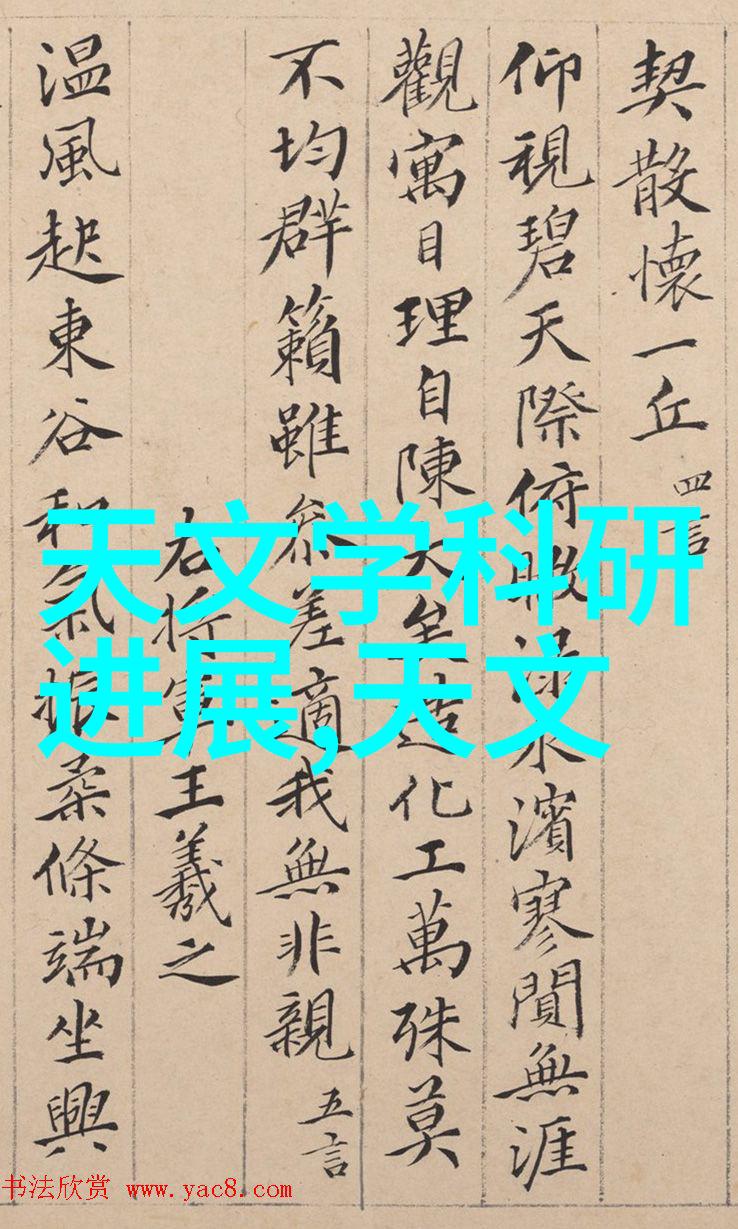 契散懷一丘 四言
仰視碧天際俯瞰淥水濱寥閴無涯
觀寓目理自陳大矣造化工萬殊莫
不均群籟雖參差適我無非親 五言
右將軍王羲之
温風起東谷和氣振柔條端坐興
天文学科研
进展,天文
书法欣赏 www.yac8.com